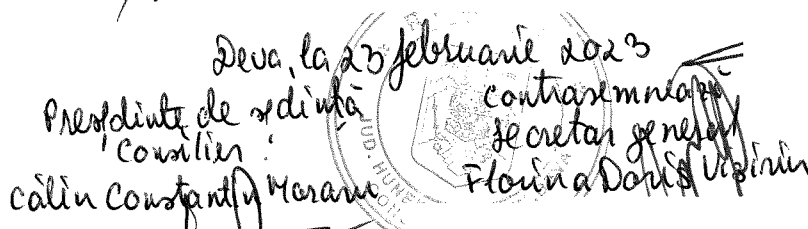 Deva, la 23 februarie 2023
Președinte de ședință
Consilier
Călin Constantin Moraru
contrasemnează
secretar general
Florina Doris Vizirin
JUD. HUNE